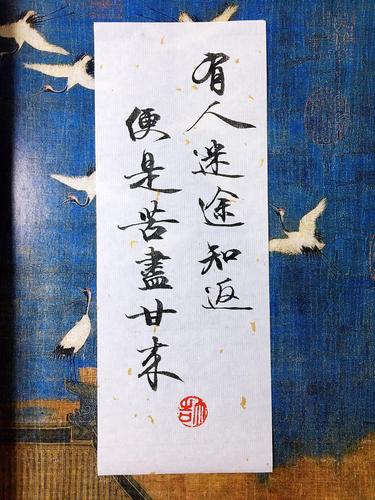 有人迷途知返
便是苦盡甘来